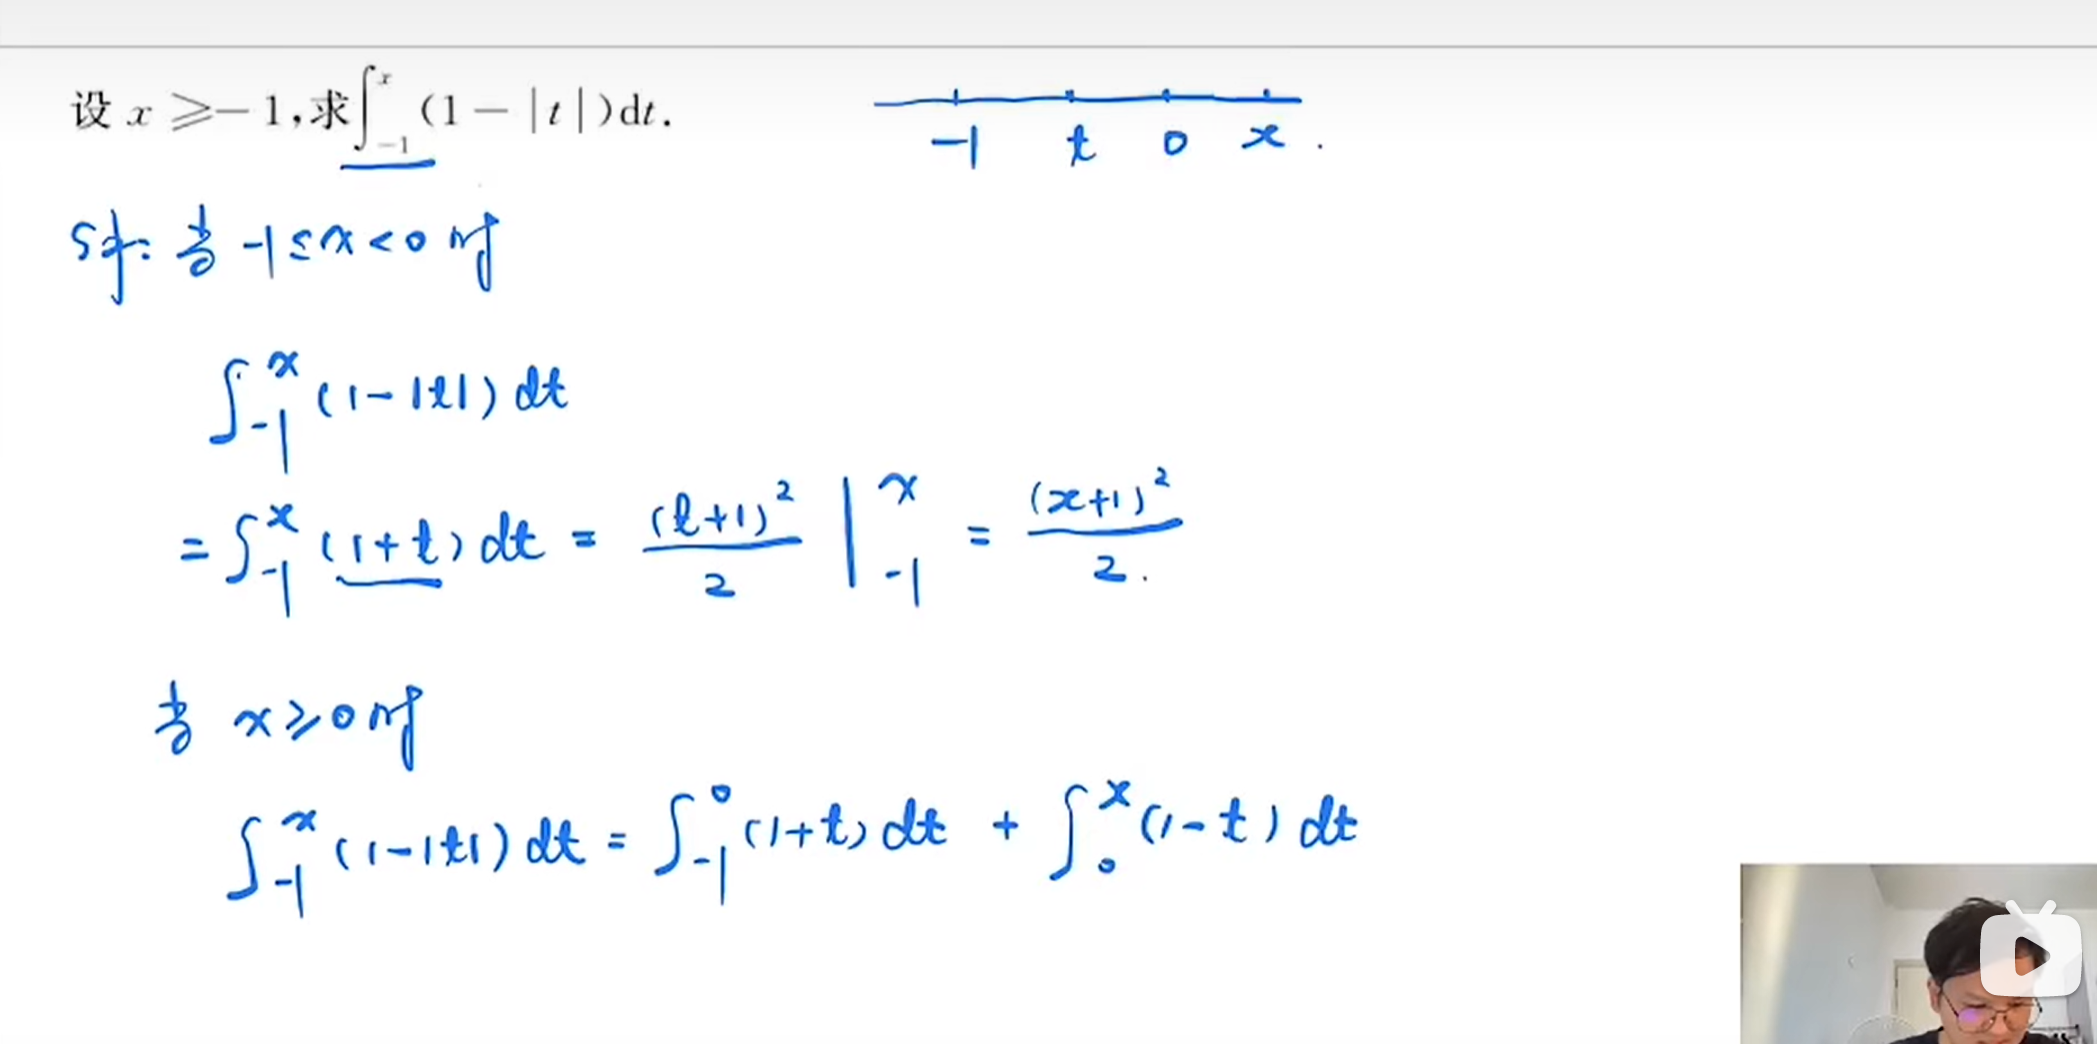 设 x ⩾ −1,求∫_{−1}^{x} (1 − |t|)dt.
-1 t 0 x .
解: 当 -1 ≤ x < 0 时
∫_{-1}^{x} (1-|t|) dt
= ∫_{-1}^{x} (1+t) dt = (t+1)²/2 |_{-1}^{x} = (x+1)²/2.
当 x ⩾ 0 时
∫_{-1}^{x} (1-|t|) dt = ∫_{-1}^{0} (1+t) dt + ∫_{0}^{x} (1-t) dt